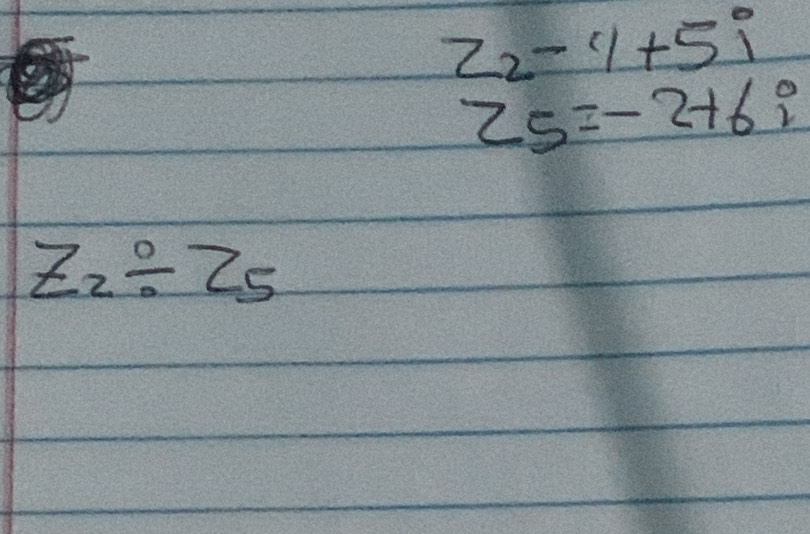 Z₂ - 1+5i
Z₅ = -2+6i
Z₂ ÷ Z₅